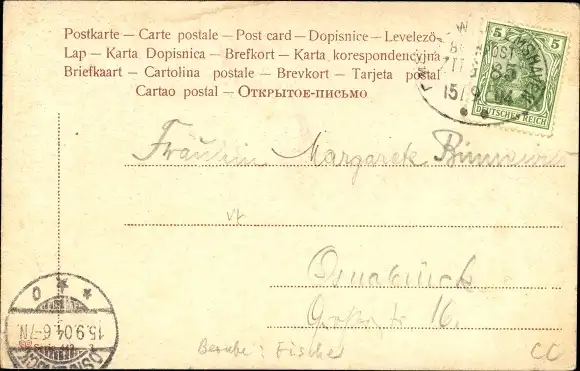 Postkarte – Carte postale – Post card – Dopisnice – Levelező-
Lap – Karta Dopisnica – Brefkort – Karta korespondencyjna
Briefkaart – Cartolina postale – Brevkort – Tarjeta postal
Cartao postal – Открытое-письмо
5 5
DEUTSCHES REICH
15/9 04
Fräulein Margarete
Osnabrück
16.
15.9.04.6-7N
Fischer
CC